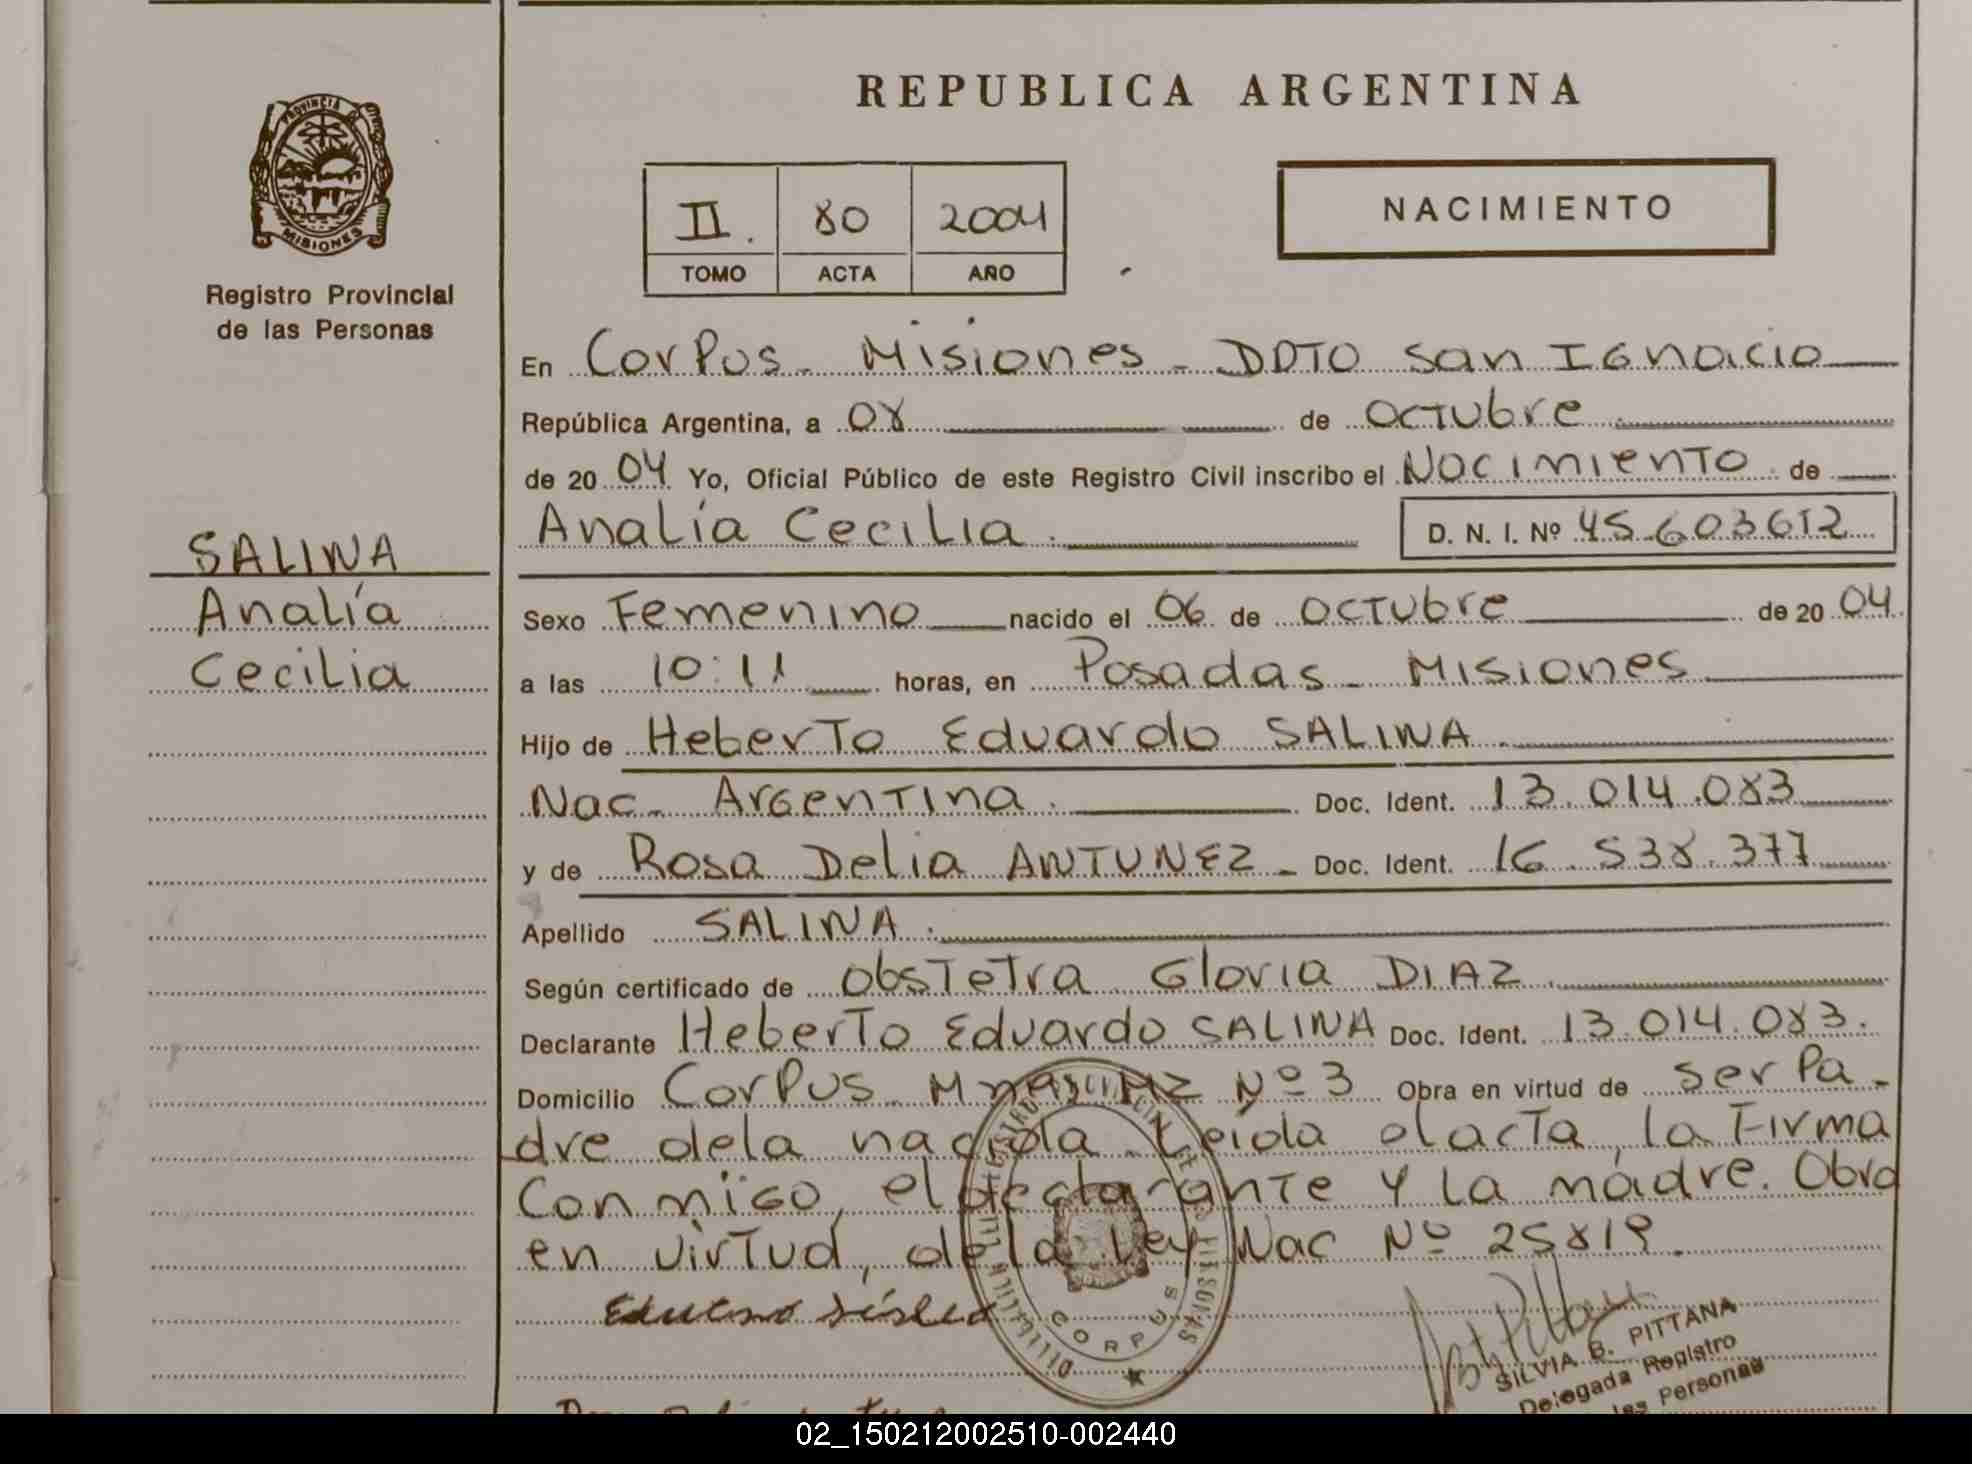 REPUBLICA ARGENTINA
PROVINCIA DE MISIONES
Registro Provincial
de las Personas
II. 80 2004
TOMO ACTA AÑO
NACIMIENTO
En Corpus - Misiones - DDTO San Ignacio
República Argentina, a 08 de Octubre
de 20 04 Yo, Oficial Público de este Registro Civil inscribo el Nacimiento de
Analía Cecilia. D. N. I. Nº 45.603612
SALINA
Analía
Cecilia
Sexo Femenino nacido el 06 de Octubre de 20 04
a las 10:11 horas, en Posadas - Misiones
Hijo de Heberto Eduardo SALINA
Nac. Argentina. Doc. Ident. 13.014.083
y de Rosa Delia ANTUNEZ - Doc. Ident. 16.538.377
Apellido SALINA.
Según certificado de Obstetra Gloria DIAZ
Declarante Heberto Eduardo SALINA Doc. Ident. 13.014.083.
Domicilio Corpus - Nº 3 Obra en virtud de ser Pa-
dre dela nacida. Leída el acta, la Firma
Conmigo, el declarante y la madre. Obra
en virtud, de la Ley Nac Nº 25819.
CORPUS
SILVIA B. PITTANA
Delegada Registro
las Personas
02_150212002510-002440